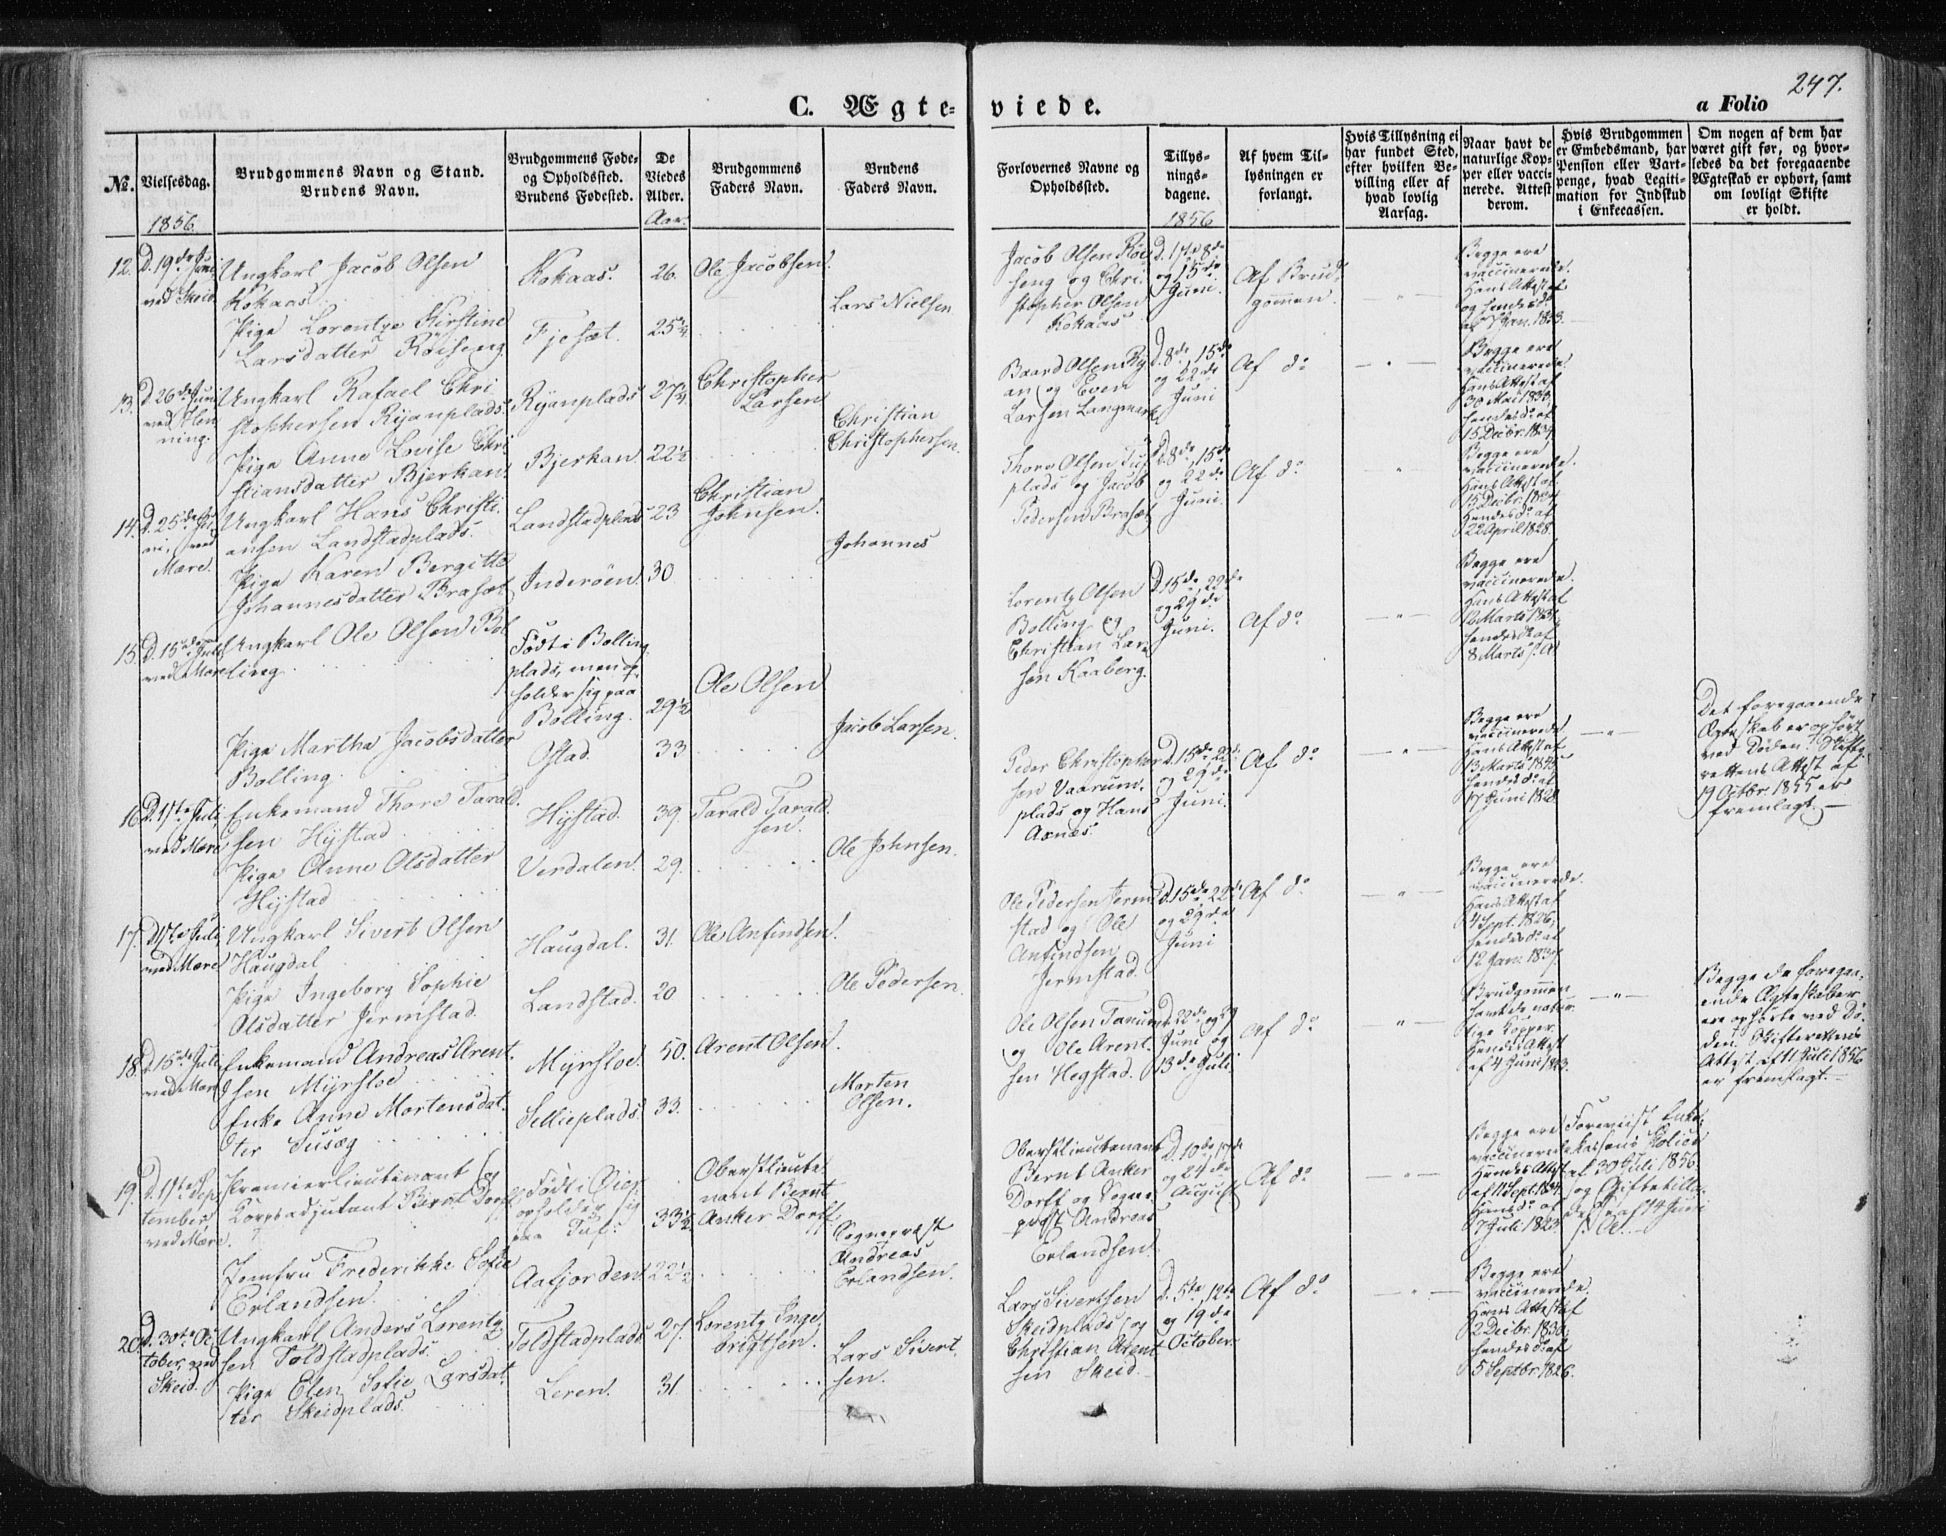 247.
C. Ægte-
viede.
a Folio
No.
Vielsesdag.
Brudgommens Navn og Stand.
Brudens Navn.
Brudgommens Føde-
og Opholdssted.
Brudens Fødested.
De
Viedes
Alder.
Brudgommens
Faders Navn.
Brudens
Faders Navn.
Forlovernes Navne og
Opholdssted.
Tillys-
nings-
dagene.
Af hvem Til-
lysningen er
forlangt.
Hvis Tillysning ei
har fundet Sted,
efter hvilken Be-
villing eller af
hvad lovlig
Aarsag.
Naar havt de
naturlige Kop-
per eller vacci-
nerede. Attest
derom.
Hvis Brudgommen
er Embedsmand, har
Pension eller Vart-
penge, hvad Legiti-
mation for Indskud
i Enkecassen.
Om nogen af dem har
været gift før, og hvor-
ledes da det foregaaende
Ægteskab er ophørt, samt
om lovligt Skifte
er holdt.
1856.
Aar.
1856
12.
D. 19de Juni
ved Skeid.
Ungkarl Jacob Olsen
Kokaas
Pige Lorentze Kirstine
Larsdatter Røiseng
Kokaas.
Fjesæt.
26.
25¼
Ole Jacobsen.
Lars Nielsen
Jacob Olsen Røi-
seng og Chri-
stopher Olsen
Kokaas
D. 1ste 8de
og 15de
Juni.
Af Brud-
gommen.
Begge ere
vaccinerede.
Hans Attest af
og hendes do
13.
D. 26de Juni
ved Hen-
ning.
Ungkarl Rafael Chri-
stophersen Ryanplads
Pige Anne Lovise Chri-
stiansdatter Bjerkan
Ryanplads
Bjerkan
27¼
22½
Christopher
Larsen
Christian
Christophersen.
Baard Olsen Ry-
an og Even
Larsen Langmark
D. 8de, 15de
og 22de
Juni
Af do
Begge ere
vaccinerede
Hans Attest af
hendes do af
15 Decbr. 1834
14.
D. 25de Ju-
ni, ved
Mære
Ungkarl Hans Christi-
ansen Landstadplads.
Pige Karen Bergitte
Johannesdatter Brasæt
Landstadplads
Inderøen
23
30
Christian
Johnsen.
Johannes
Thore Olsen Tuf-
plads og Jacob
Pedersen Brasæt
D. 8de, 15de
og 22de
Juni.
Af do
Begge ere
vaccinerede.
Hans Attest af
15 Decbr. 1834
Hendes do af
22 April 1828.
15.
D. 15de Juli
ved Mære
Ungkarl Ole Olsen Bol-
ling
Pige Martha Jacobsdatter
Bolling.
Født i Bolling-
plads, men op-
holder sig paa
Bolling.
Ostad.
29½
33
Ole Olsen
Jacob Larsen.
Lorentz Olsen
Bolling og
Christian Lar-
sen Kaaberg.
D. 15de, 22de
og 29de
Juni.
Af do
Begge ere
vaccinerede.
Hans Attest af
hendes do af
8 Marts s. A
16.
D. 1ste Juli,
ved Mære
Enkemand Thore Tarald-
sen Hystad
Pige Anne Olsdatter
Hystad
Hystad.
Verdalen.
39.
29.
Tarald Tarald-
sen.
Ole Johnsen.
Peder Christopher-
sen Vaarum-
plads og Hans
Axnæs.
D. 15de, 22de
og 29de
Juni
Af do
Begge ere
vaccinerede
Hans Attest af
hendes do af
17 Juni 1828.
Det foregaaende
Ægteskab er ophørt
ved Døden. Skifte-
rettens Attest af
19 Octbr. 1855 er
fremlagt.
17.
D. 1ste Juli
ved Mære
Ungkarl Sivert Olsen
Haugdal
Pige Ingeborg Sophie
Olsdatter Jermstad.
Haugdal.
Landstad.
31.
20
Ole Anfindsen.
Ole Pedersen.
Ole Pedersen Jerm-
stad og Ole
Anfindsen
Jermstad.
D. 15de, 22de
og 29de
Juni
Af do
Begge ere
vaccinerede.
Hans Attest af
4 Sept. 1826,
hendes do af
12 Jan. 1837
18.
D. 15de Juli
ved Mære
Enkemand Andreas Arent-
sen Myrsloe
Enke Anne Mortensdat-
ter Susæg
Myrsloe.
Sellieplads.
50.
33.
Arent Olsen.
Morten
Olsen.
Ole Olsen Tanum
og Ole Arent-
sen Hegstad.
D. 22de og 29
Juni og
13de Juli
Af do
Brudgommen
havt de natur-
lige Kopper.
Hendes Attest
af 4 Juni 1823.
Begge de foregaa-
ende Ægteskaber
ere ophørte ved Dø-
den. Skifterettens
Attest af 11 Juli 1856
er fremlagt.
19.
D. 1ste Sep-
tember,
ved Mære.
Premierlieutenant og
Korpsadjutant Bernt Dorff
Jomfru Frederikke Sofie
Erlandsen.
Født i Øier,
opholder sig
paa Tuf.
Aafjorden
33½
22½
Oberstlieute-
nant Bernt
Anker Dorff
Sogneprest
Andreas
Erlandsen.
Oberstlieutenant
Bernt Anker
Dorff og Sogne-
prest Andreas
Erlandsen.
D. 10de, 17de
og 24de
August
Af do
Begge ere
vaccinerede
Hendes Attest
af 11 Sept. 1834
Hans do af
7 Juli 1823
Foreviist Enke-
kassens Police
af 30 Juli 1856
og Giftetilla-
delse af 14 Juni
s. A.
20.
D. 30te Oc-
tober, ved
Skeid.
Ungkarl Anders Lorentz-
sen Toldstadplads.
Pige Elen Sofie Larsdat-
ter Skeidplads.
Toldstadplads
Leren.
27.
31.
Lorentz Inge-
brigtsen.
Lars Sivert-
sen.
Lars Sivertsen
Skeidplads og
Christian Arent-
sen Skeid.
D. 5te, 12te
og 19de
October.
Af do
Begge ere
vaccinerede.
Hans Attest af
2 Decbr. 1830,
hendes do af
5 Septbr. 1826.